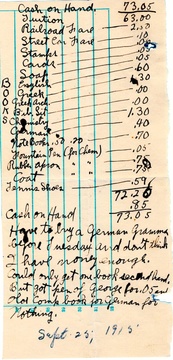 Cash on Hand 73.05
Tuition 63.00
Railroad Fare 2.50
Street Car Fare .10
Stamps
Cards .05
Soap
BOOKS
English .30
Greek .00
Greek
Bib. Lit 1.30
Chemistry .90
German .70
Notebook
Fountain Pen (for Chem) .05
Rubber apron " "
Coat " "
Tennis Shoes .59
72.20
.85
Cash on Hand 73.05
Have to buy a German Grammar
before Tuesday and don't think
I have money enough.
Could only get one book second hand,
But got pen of George for 05 and
Old Comp. book for German for
nothing.
Sept. 25, 1915